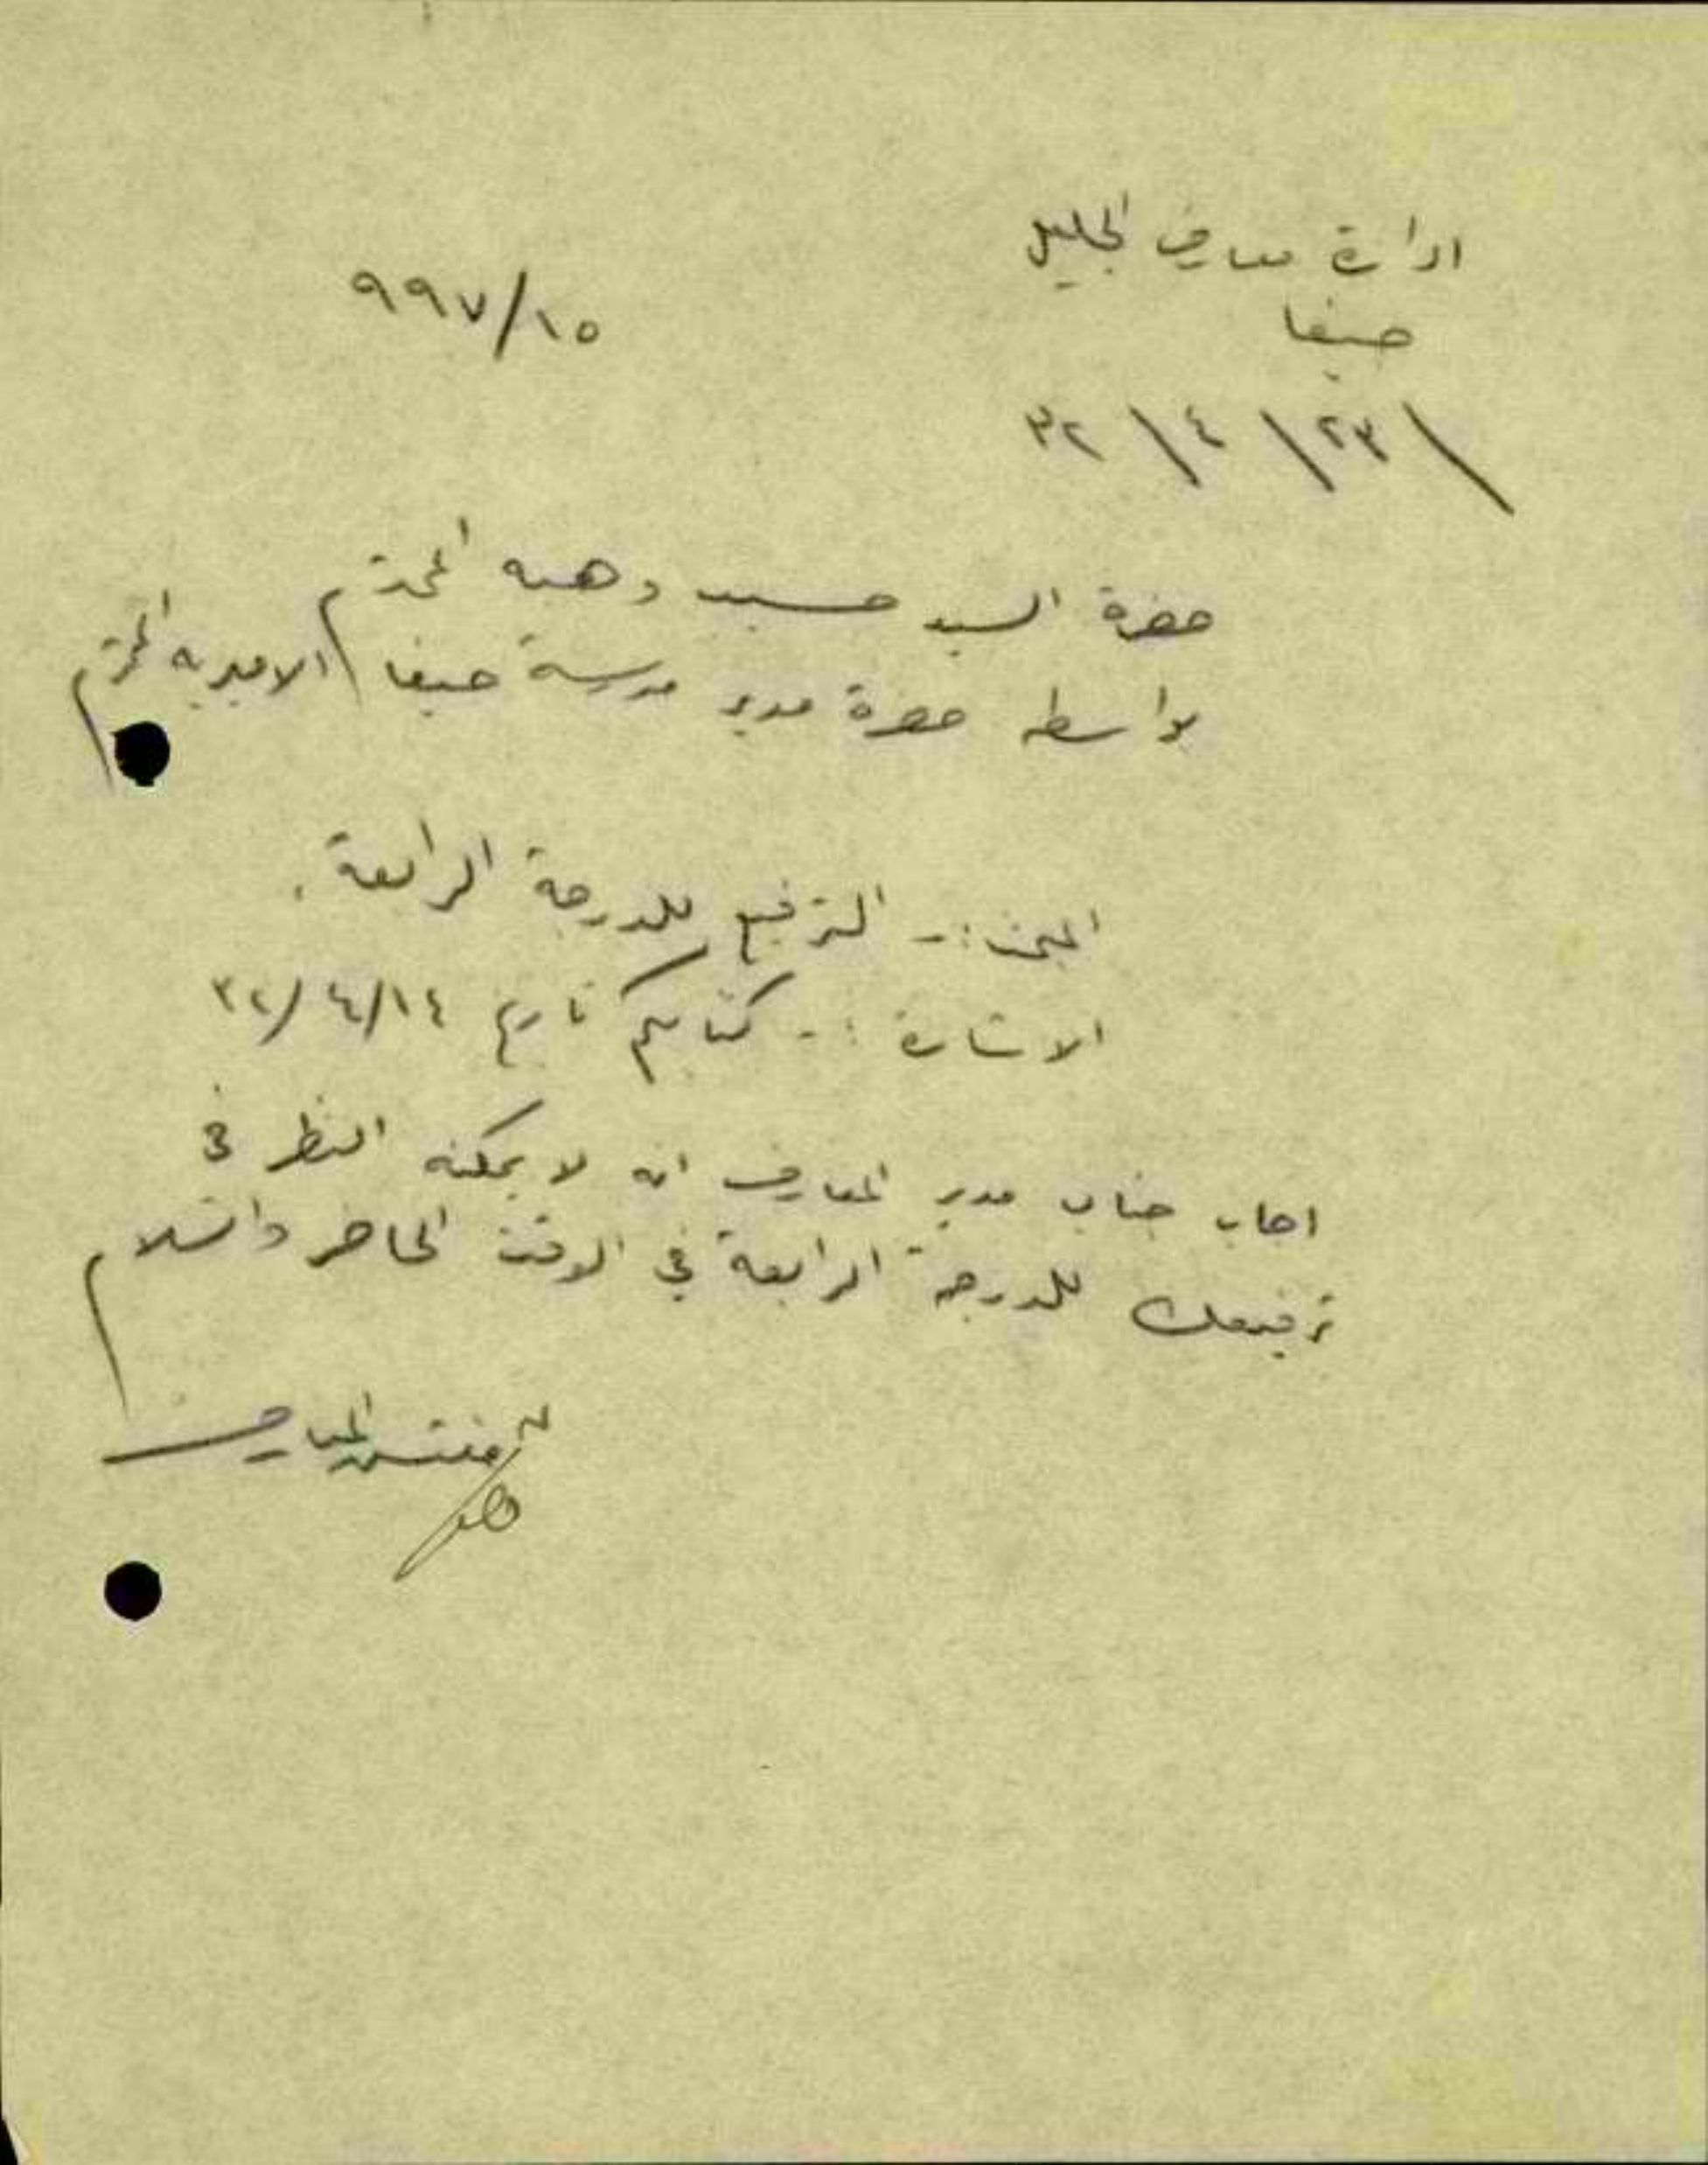 ادارة معارف الجليل
حيفا
٩٩٧/١٥
٢٣/٤/٣٢
حضرة السيد حسيب وهبه المحترم
بواسطه حضرة مدير مدرسة حيفا الاميريه المحترم
المبحث :- الترفيع للدرجة الرابعة .
الاشارة :- كتابكم تاريخ ١٤/٤/٣٢
اجاب جناب مدير المعارف انه لا يمكنه النظر في
ترفيعك للدرجة الرابعة في الوقت الحاضر والسلام
مفتش المعارف